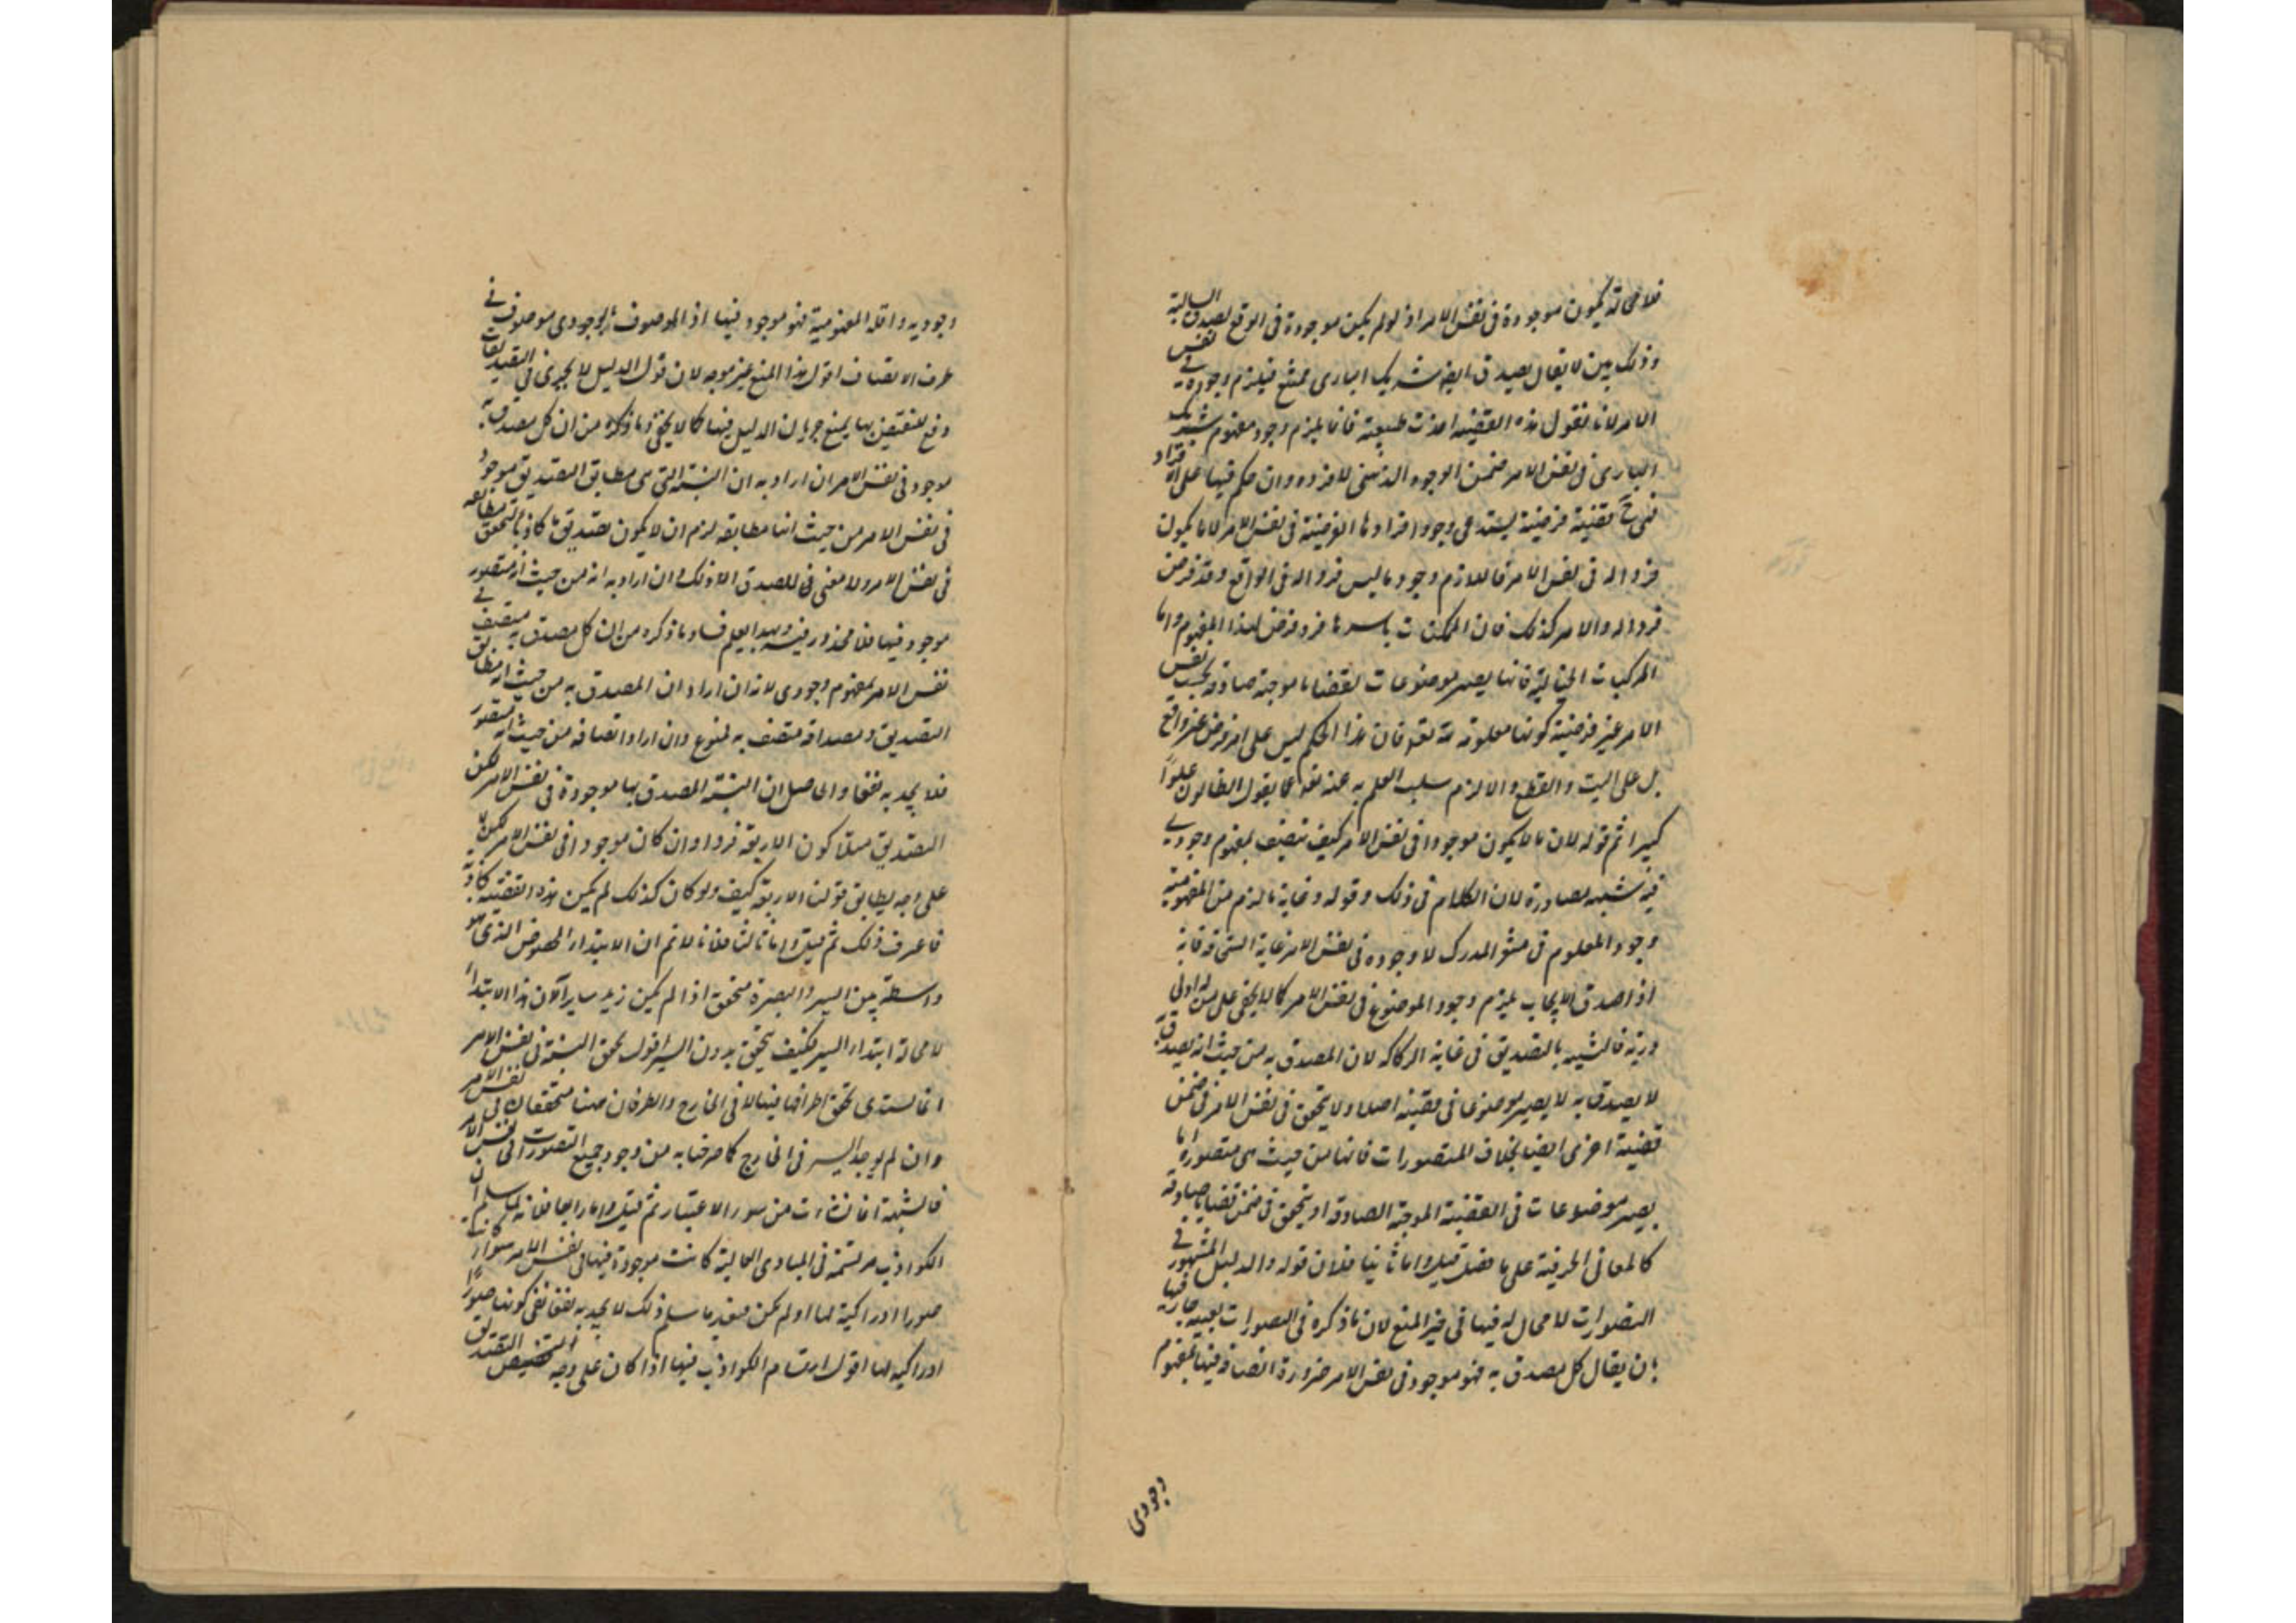 فلا محالة يكون موجودة فى نفس الامر اذ لو لم يكن موجودة فى الواقع لصدق السالبة
وذلك بين لا يقال يصدق ايضا شريك البارى ممتنع فيلزم وجوده فى نفس
الامر لانا نقول هذه القضية اخذت طبيعية فانما يلزم وجود مفهوم شريك
البارى فى نفس الامر ضمن الوجود الذهنى لا فرده وان حكم فيها على الافراد
فهى ح قضية فرضية يستدعى وجود افرادها الفرضية فى نفس الامر لا ما يكون
فردا له فى نفس الامر فاللازم وجود ما ليس فردا له فى الواقع وقد فرض
فردا له والامر كذلك فان الممكنات باسرها فرد فرضى لهذا المفهوم واما
المركبات الخيالية فانها يصير موضوعات لقضايا موجبة صادقة بحسب نفس
الامر غير فرضية كونها معلومة لله تعالى فان هذا الحكم ليس على امر فرضى غير واقع
بل على البت والقطع والا لزم سلب العلم به عنه تعالى كما يقول الظالمون علوا
كبيرا ثم قوله لان ما لا يكون موجودا فى نفس الامر كيف يتصف بمفهوم وجودى
فيه شبه مصادرة لان الكلام فى ذلك وقوله وغاية ما لزم من المفهومية
وجود المعلوم فى مشعر المدرك لا وجوده فى نفس الامر غاية السخافة
اذا صدق الايجاب يلزم وجود الموضوع فى نفس الامر كما لا يخفى على من له ادنى
درية فالتشبيه بالتصديق فى غاية الركاكة لان المصدق به من حيث انه يصدق
لا يصدق به لا يصير موضوعا فى قضية اصلا ولا يتحقق فى نفس الامر فى ضمن
قضية اخرى ايضا بخلاف المتصورات فانها من حيث هى متصورة اما
يصير موضوعات فى القضية الموجبة الصادقة او يتحقق فى ضمن قضايا صادقة
كالمعانى الحرفية على ما فصل قيل واما ثانيا فلان قوله والدليل المشهور فى
التصورات لا مجال له فيها فى حيز المنع لان ما ذكره فى التصورات بعينه جار فيها
بان يقال كل مصدق به فهو موجود فى نفس الامر ضرورة اتصافه فيها بمفهوم
وجودى
وجوديه واقله المفهومية فهو موجود فيها اذ الموصوف بالوجودى موصوف فى
ظرف الاتصاف اقول هذا المنع غير موجه لان قول الدليل لا يجرى فى التصديقات
دفع للنقض بها يمنع جريان الدليل فيها كما لا يخفى وما ذكره من ان كل مصدق به
موجود فى نفس الامر ان اراد به ان النسبة التى هى مطابق التصديق موجود
فى نفس الامر من حيث انها مطابقه لزم ان لا يكون تصديق ما كاذبا لتحقق مطابقه
فى نفس الامر ولا معنى للصدق الا ذلك وان اراد به انه من حيث انه متصور
موجود فيها فلا محذور فيه وبهذا يعلم فساد ما ذكره من ان كل مصدق به متصف فى
نفس الامر بمفهوم وجودى لانه ان اراد ان المصدق به من حيث انه مطابق
التصديق ومصداقه متصف به فممنوع وان اراد اتصافه من حيث انه متصور
فلا يجديه نفعا والحاصل ان النسبة المصدق بها موجودة فى نفس الامر لكن
التصديق مثلا كون الاربعة فردا وان كان موجودا فى نفس الامر لكن لا
على وجه يطابق قولنا الاربعة كيف ولو كان كذلك لم يكن هذه القضية كاذبة
فاعرف ذلك ثم قيل واما ثالثا فلانا لا نم ان الابتداء المخصوص الذى هو
واسطة بين السير والبصرة متحقق اذا لم يكن زيد سايرا لان هذا الابتداء
لا محالة ابتداء السير فكيف يتحقق بدون السير اقول تحقق النسبة فى نفس الامر
انما يستدعى تحقق اطرافها فيها لا فى الخارج والطرفان هنا متحققان فى نفس الامر
وان لم يوجد السير فى الخارج كما صرحنا به من وجود جميع التصورات فى نفس الامر
فالشبهة انما نشأت من سوء الاعتبار ثم قيل واما رابعا فلانه لما سلم ان
الكواذب مرتسمة فى المبادى العالية كانت موجودة فيها فى نفس الامر سواء كانت
صورا ادراكية لها او لم يكن فبعد ما سلم ذلك لا يجديه نفعا نفى كونها صورا
ادراكية لها اقول ارتسام الكواذب فيها اذا كان على وجه التصديق